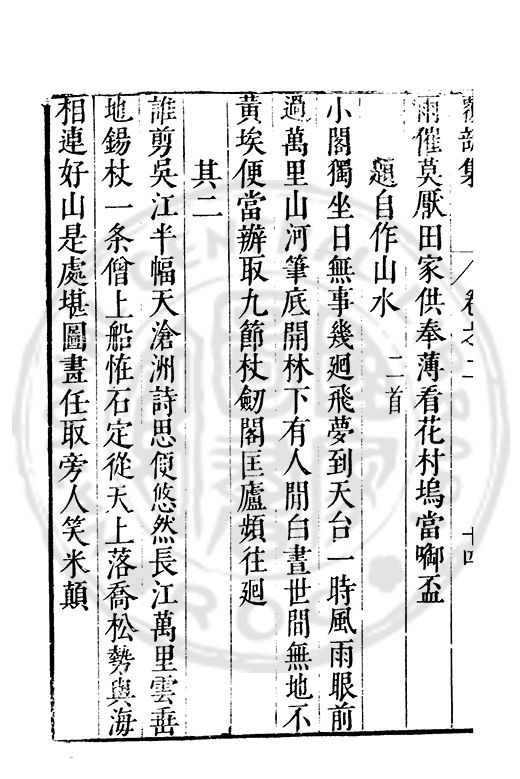 覆瓿集 卷之二 十四
雨催莫厭田家供奉薄看花村塢當啣盃
題自作山水 二首
小閣獨坐日無事幾廻飛夢到天台一時風雨眼前
過萬里山河筆底開林下有人閒白晝世間無地不
黃埃便當辦取九節杖劒閣匡廬頻往廻
其二
誰剪吳江半幅天滄洲詩思便悠然長江萬里雲垂
地錫杖一条僧上船恠石定從天上落喬松勢與海
相連好山是處堪圖畫任取旁人笑米顛